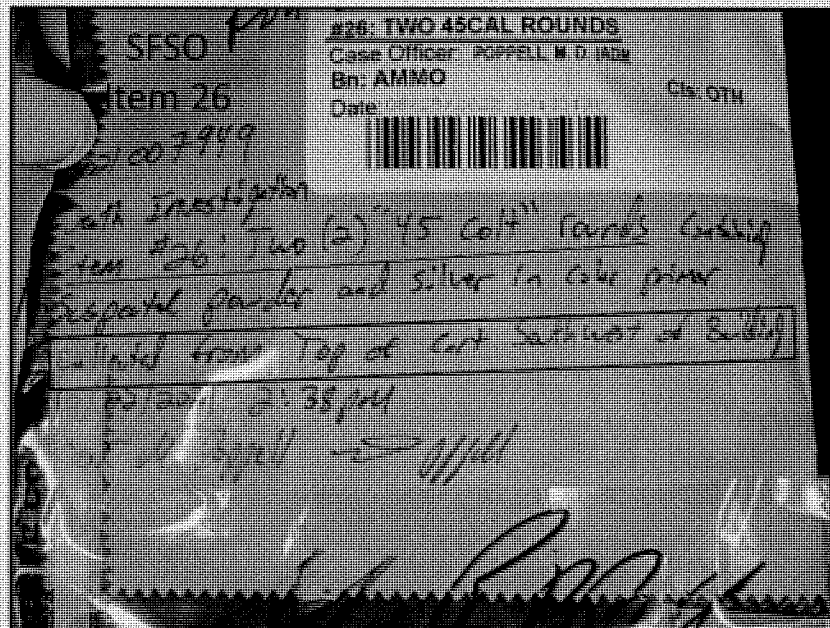 SFSO
Item 26
#26: TWO 45CAL ROUNDS
Case Officer: POPPELL M D
Bn: AMMO
Cls: OTH
Date
007949
Investigation
#26: Two (2) "45 Colt" rounds
powder and silver in color primer
Collected from Top of Cart Southwest of Building
2:38 pm